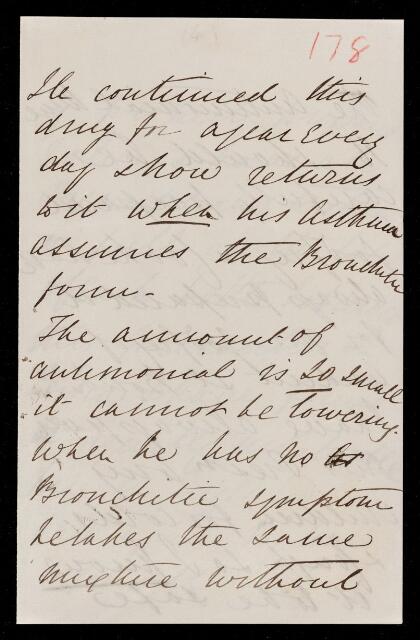 178
He continued this
drug for a year every
day & now returns
to it when his Asthma
assumes the Bronchitic
form -
The amount of
antimonial is so small
it cannot be lowering.
When he has no
Bronchitic symptom
he takes the same
mixture without